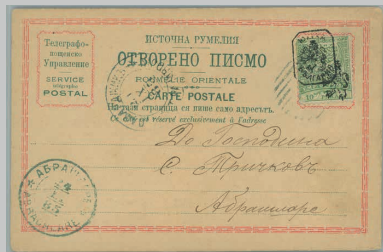 Телеграфо-
пощенско
Управление
SERVICE
POSTAL
ИСТОЧНА РУМЕЛИЯ
ОТВОРЕНО ПИСМО
ROUMELIE ORIENTALE
CARTE POSTALE
На тази страница ся пише само адресътъ.
Ce côté est réservé exclusivement à l'adresse
До Господина
С. Тричковъ
Абрашларе
АБРАШЛАРЕ
ABRACHLARE